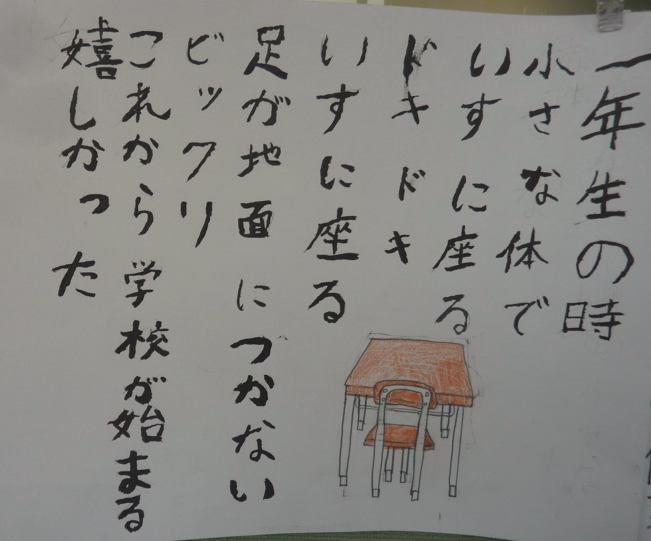 一年生の時
小さな体で
いすに座る
ドキドキ
いすに座る
足が地面につかない
ビックリ
これから学校が始まる
嬉しかった